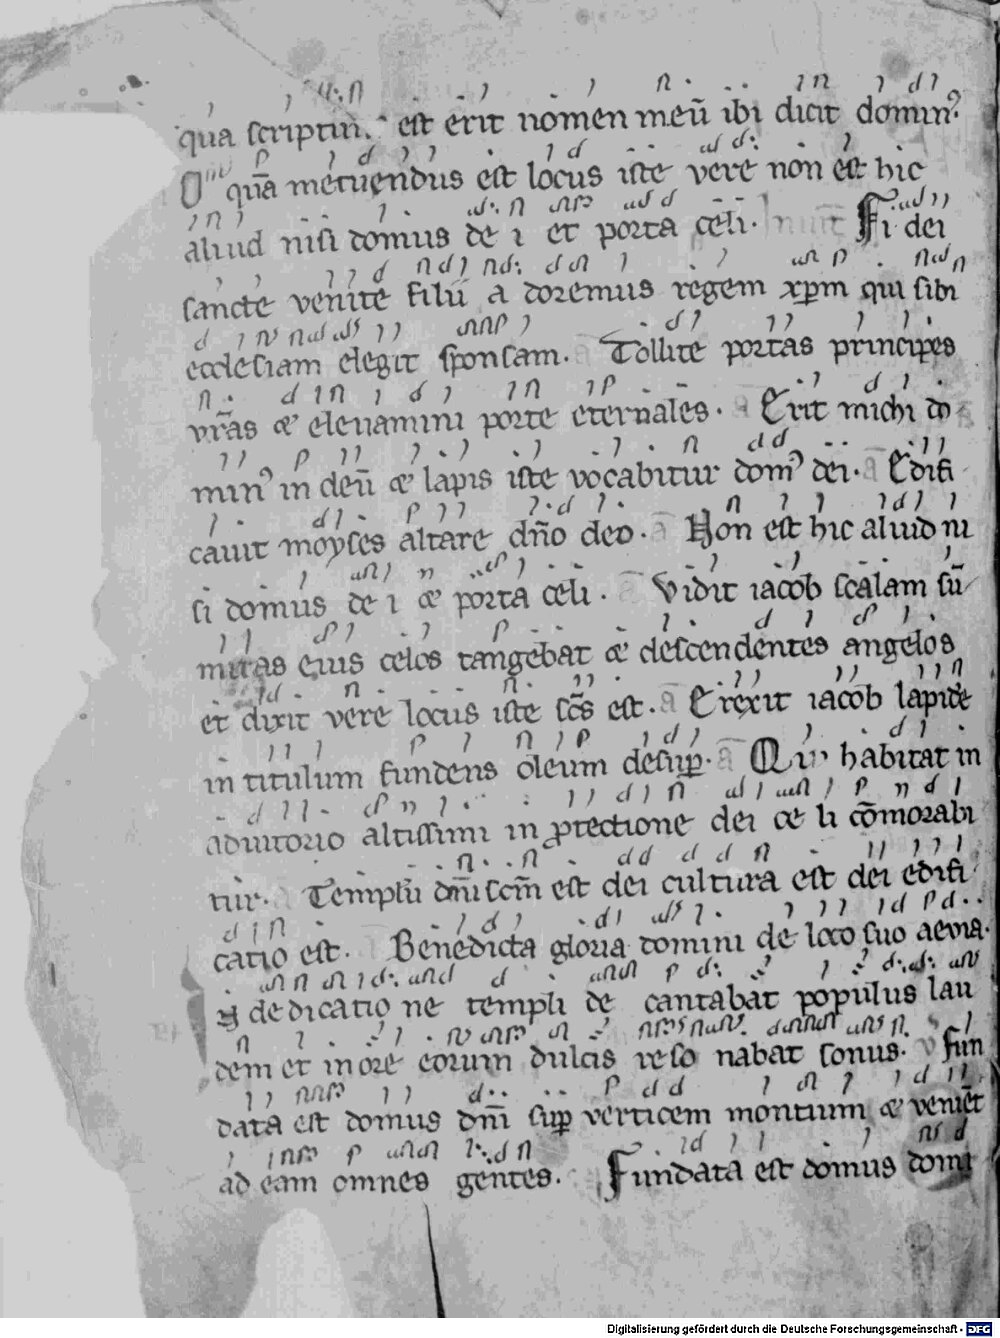 qua scriptū. est erit nomen meū ibi dicit domin᾽.
O quā metuendus est locus iste vere non est hic
aliud nisi domus de i et porta celi. Fi dei
sancte venite filii a doremus regem xp̄m qui sibi
ecclesiam elegit sponsam. Tollite portas principes
vr̄as æ elevamini porte eternales. Erit michi do
min᾽ in deū æ lapis iste vocabitur dom᾽ dei. Edifi
cavit moyses altare dn̄o deo. Non est hic aliud ni
si domus de i æ porta celi. Vidit iacob scalam sū
mitas eius celos tangebat æ descendentes angelos
et dixit vere locus iste scs̄ est. Erexit iacob lapide
in titulum fundens oleum desup̱. Qui habitat in
adiutorio altissimi in p̱tectione dei ce li cōmorabi
tur. Templū dn̄i scm̄ est dei cultura est dei edifi
catio est. Benedicta gloria domini de loco suo aevia.
In dedicatio ne templi de cantabat populus lau
dem et in ore eorum dulcis reso nabat sonus. v fun
data est domus dn̄i sup̱ verticem montium æ veniēt
ad eam omnes gentes. Fundata est domus domi
Digitalisierung gefördert durch die Deutsche Forschungsgemeinschaft - DFG